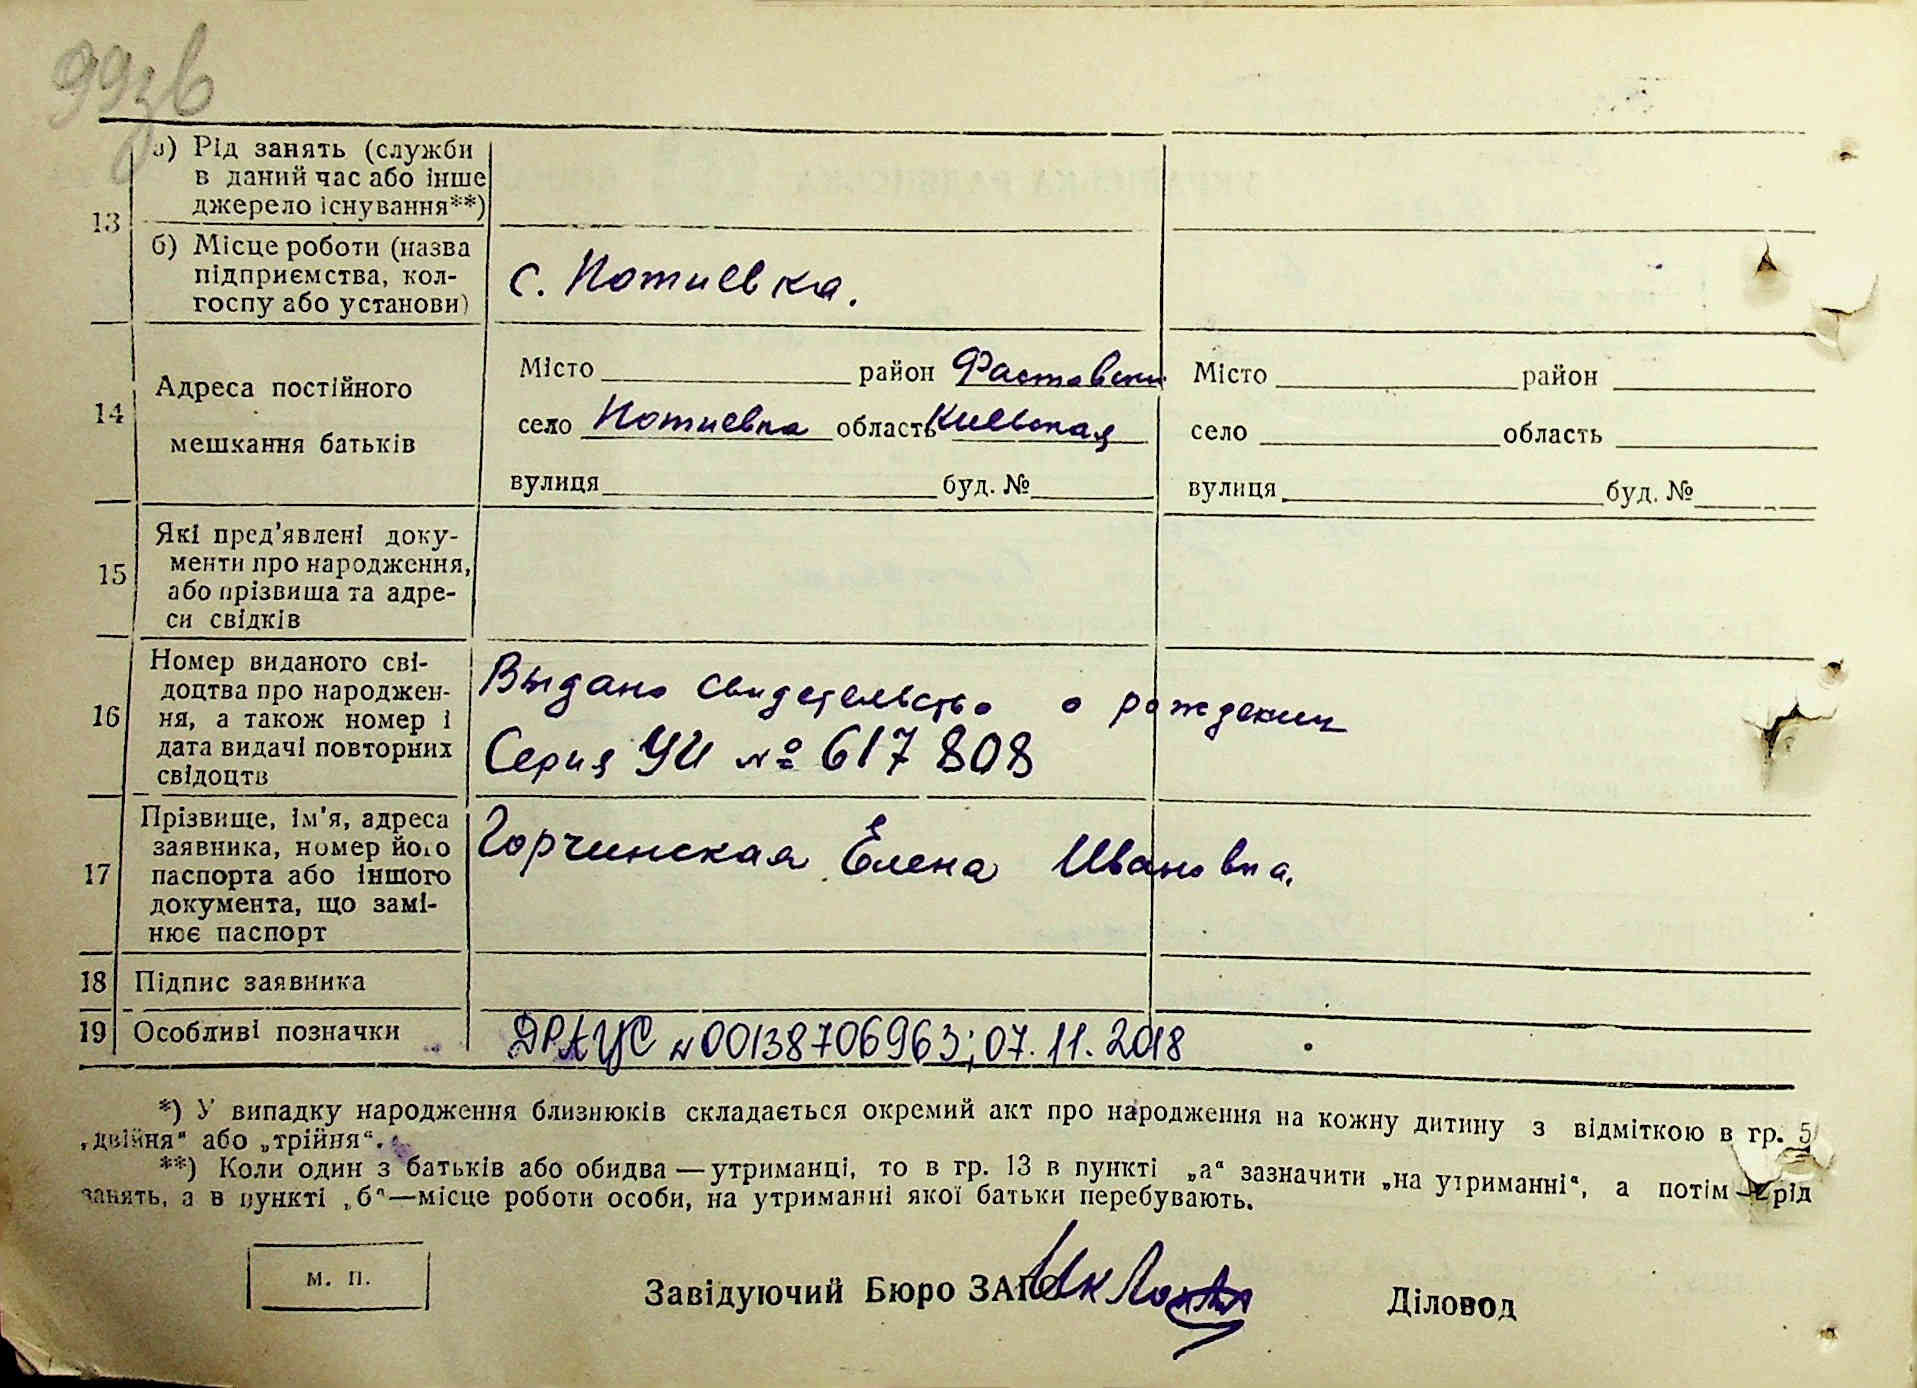 99зв
13
а) Рід занять (служби
в даний час або інше
джерело існування**)
б) Місце роботи (назва
підприємства, кол-
госпу або установи)
с. Потиевка.
14
Адреса постійного
мешкання батьків
Місто район Фастовский
село Потиевка область Киевская
вулиця буд. №
Місто район
село область
вулиця буд. №
15
Які пред'явлені доку-
менти про народження,
або прізвища та адре-
си свідків
16
Номер виданого сві-
доцтва про народжен-
ня, а також номер і
дата видачі повторних
свідоцтв
Выдано свидетельство о рождении
Серия УИ № 617808
17
Прізвище, ім'я, адреса
заявника, номер його
паспорта або іншого
документа, що замі-
нює паспорт
Горчинская Елена Ивановна.
18 Підпис заявника
19 Особливі позначки
ДРАЦС N00138706963; 07.11.2018
*) У випадку народження близнюків складається окремий акт про народження на кожну дитину з відміткою в гр. 5
„двійня“ або „трійня“.
**) Коли один з батьків або обидва — утриманці, то в гр. 13 в пункті „а“ зазначити „на утриманні“, а потім — рід
занять, а в пункті „б“—місце роботи особи, на утриманні якої батьки перебувають.
М. П.
Завідуючий Бюро ЗАГС
Діловод